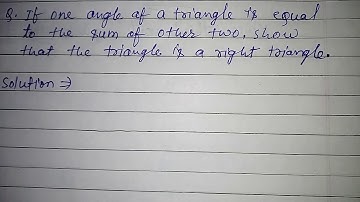 Q. If one angle of a triangle is equal
to the sum of other two, show
that the triangle is a right triangle.
Solution ⇒